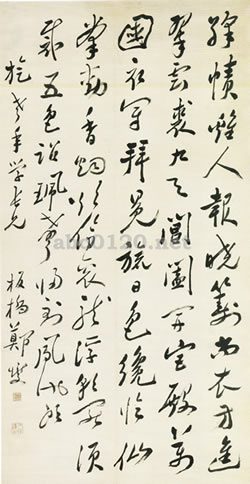 絳幘雞人報曉籌尚衣方進
翠雲裘九天閶闔開宮殿萬
國衣冠拜冕旒日色纔臨仙
掌動香烟欲傍袞龍浮朝罷須
裁五色詔珮聲歸到鳳池頭
年學長兄
板橋鄭燮